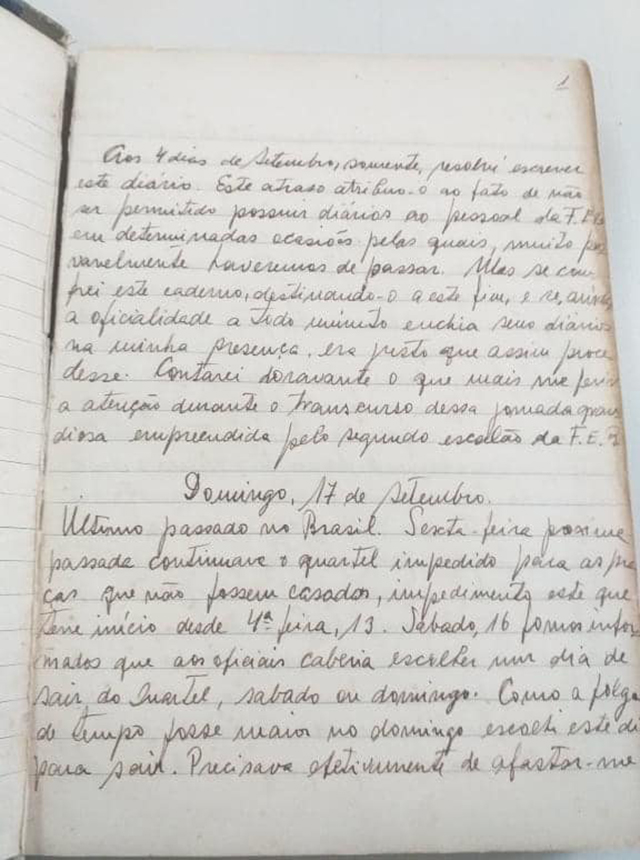 1
Aos 4 dias de Setembro, somente, resolvi escrever
este diário. Este atraso atribuo-o ao fato de não
ser permitido possuir diários ao pessoal da F.E.B.
em determinadas ocasiões pelas quais, muito pro
vavelmente haveremos de passar. Mas se com
prei este caderno, destinando-o a este fim, e se,
a oficialidade a todo minuto enchia seus diários
na minha presença, era justo que assim proce
desse. Contarei doravante o que mais me ferir
a atenção durante o transcurso dessa jornada gran
diosa empreendida pelo segundo escalão da F.E.B.
Domingo, 17 de Setembro.
Ultimo passado no Brasil. Sexta-feira proxima
passada continuava o quartel impedido para as pra
ças que não fossem casados, impedimento este que
teve início desde 4ª feira, 13. Sábado, 16 fomos infor
mados que aos oficiais caberia escolher um dia de
sair do Quartel, sabado ou domingo. Como a folga
de tempo fosse maior no domingo escolhi este di
para sair. Precisava efetivamente de afastar-me